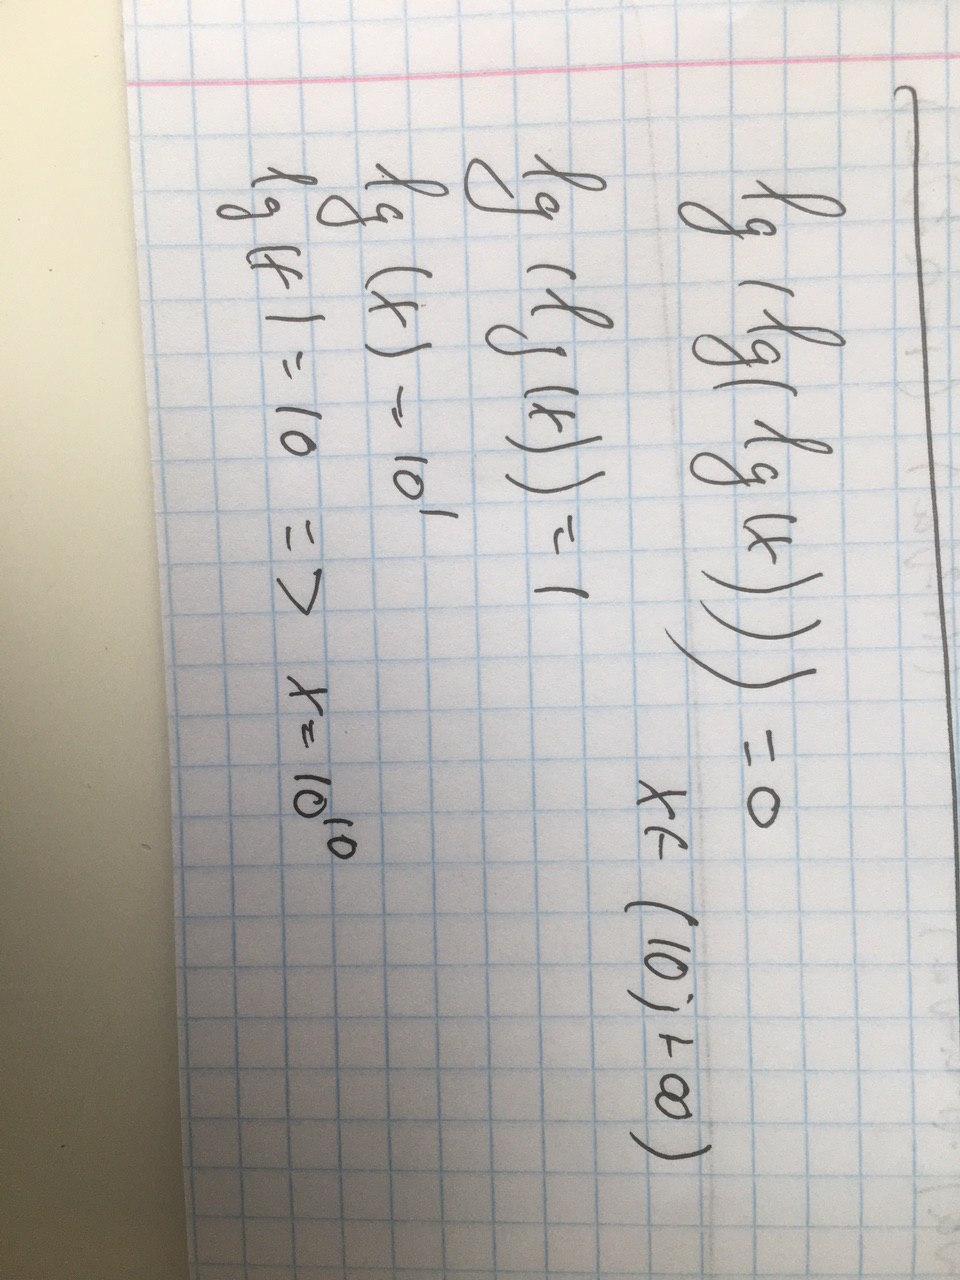 lg(lg(lg(x))) = 0
x ∈ (10; +∞)
lg(lg(x)) = 1
lg(x) = 10¹
lg(x) = 10 => x = 10¹⁰